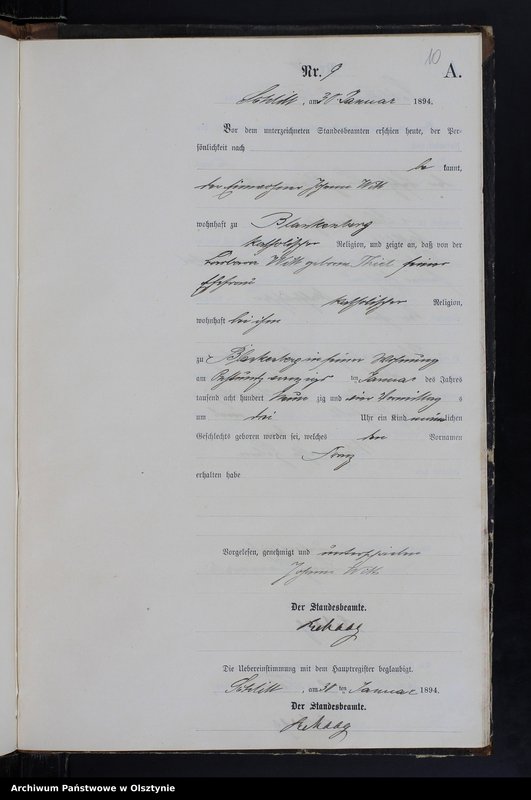 10
Nr. 9 A.
Schlitt, am 30 Januar 1894.
Vor dem unterzeichneten Standesbeamten erschien heute, der Per-
sönlichkeit nach
be kannt,
der Einwohner Johann Witt
wohnhaft zu Blankenberg
katholischer Religion, und zeigte an, daß von der
Barbara Witt geborene Thiel seiner
Ehefrau
katholischer Religion,
wohnhaft bei ihm
zu Blankenberg in seiner Wohnung
am achtundzwanzigsten Januar des Jahres
tausend acht hundert neun zig und vier Vormittag s
um drei Uhr ein Kind männlichen
Geschlechts geboren worden sei, welches den Vornamen
Franz
erhalten habe
Vorgelesen, genehmigt und unterschrieben
Johann Witt
Der Standesbeamte.
Rehaag
Die Uebereinstimmung mit dem Hauptregister beglaubigt.
Schlitt, am 30 ten Januar 1894.
Der Standesbeamte.
Rehaag
Archiwum Państwowe w Olsztynie